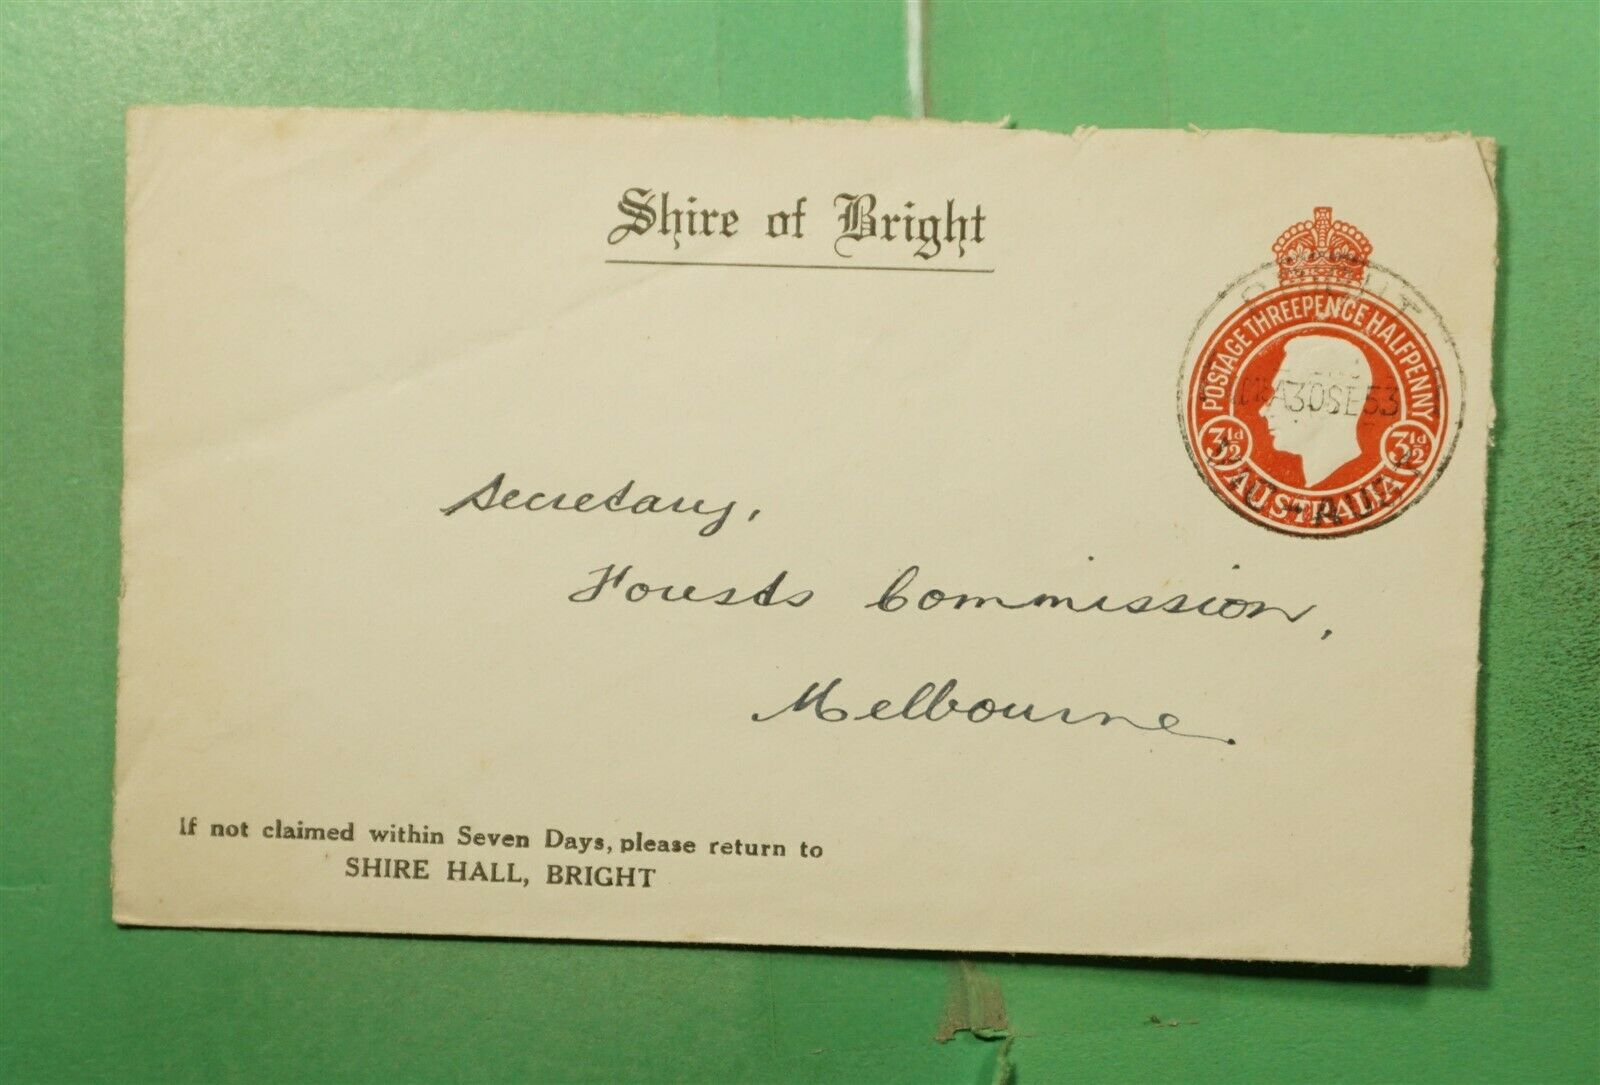 Shire of Bright
POSTAGE THREEPENCE HALFPENNY
3½d 3½d
AUSTRALIA
30SE53
Secretary,
Forests Commission,
Melbourne.
If not claimed within Seven Days, please return to
SHIRE HALL, BRIGHT